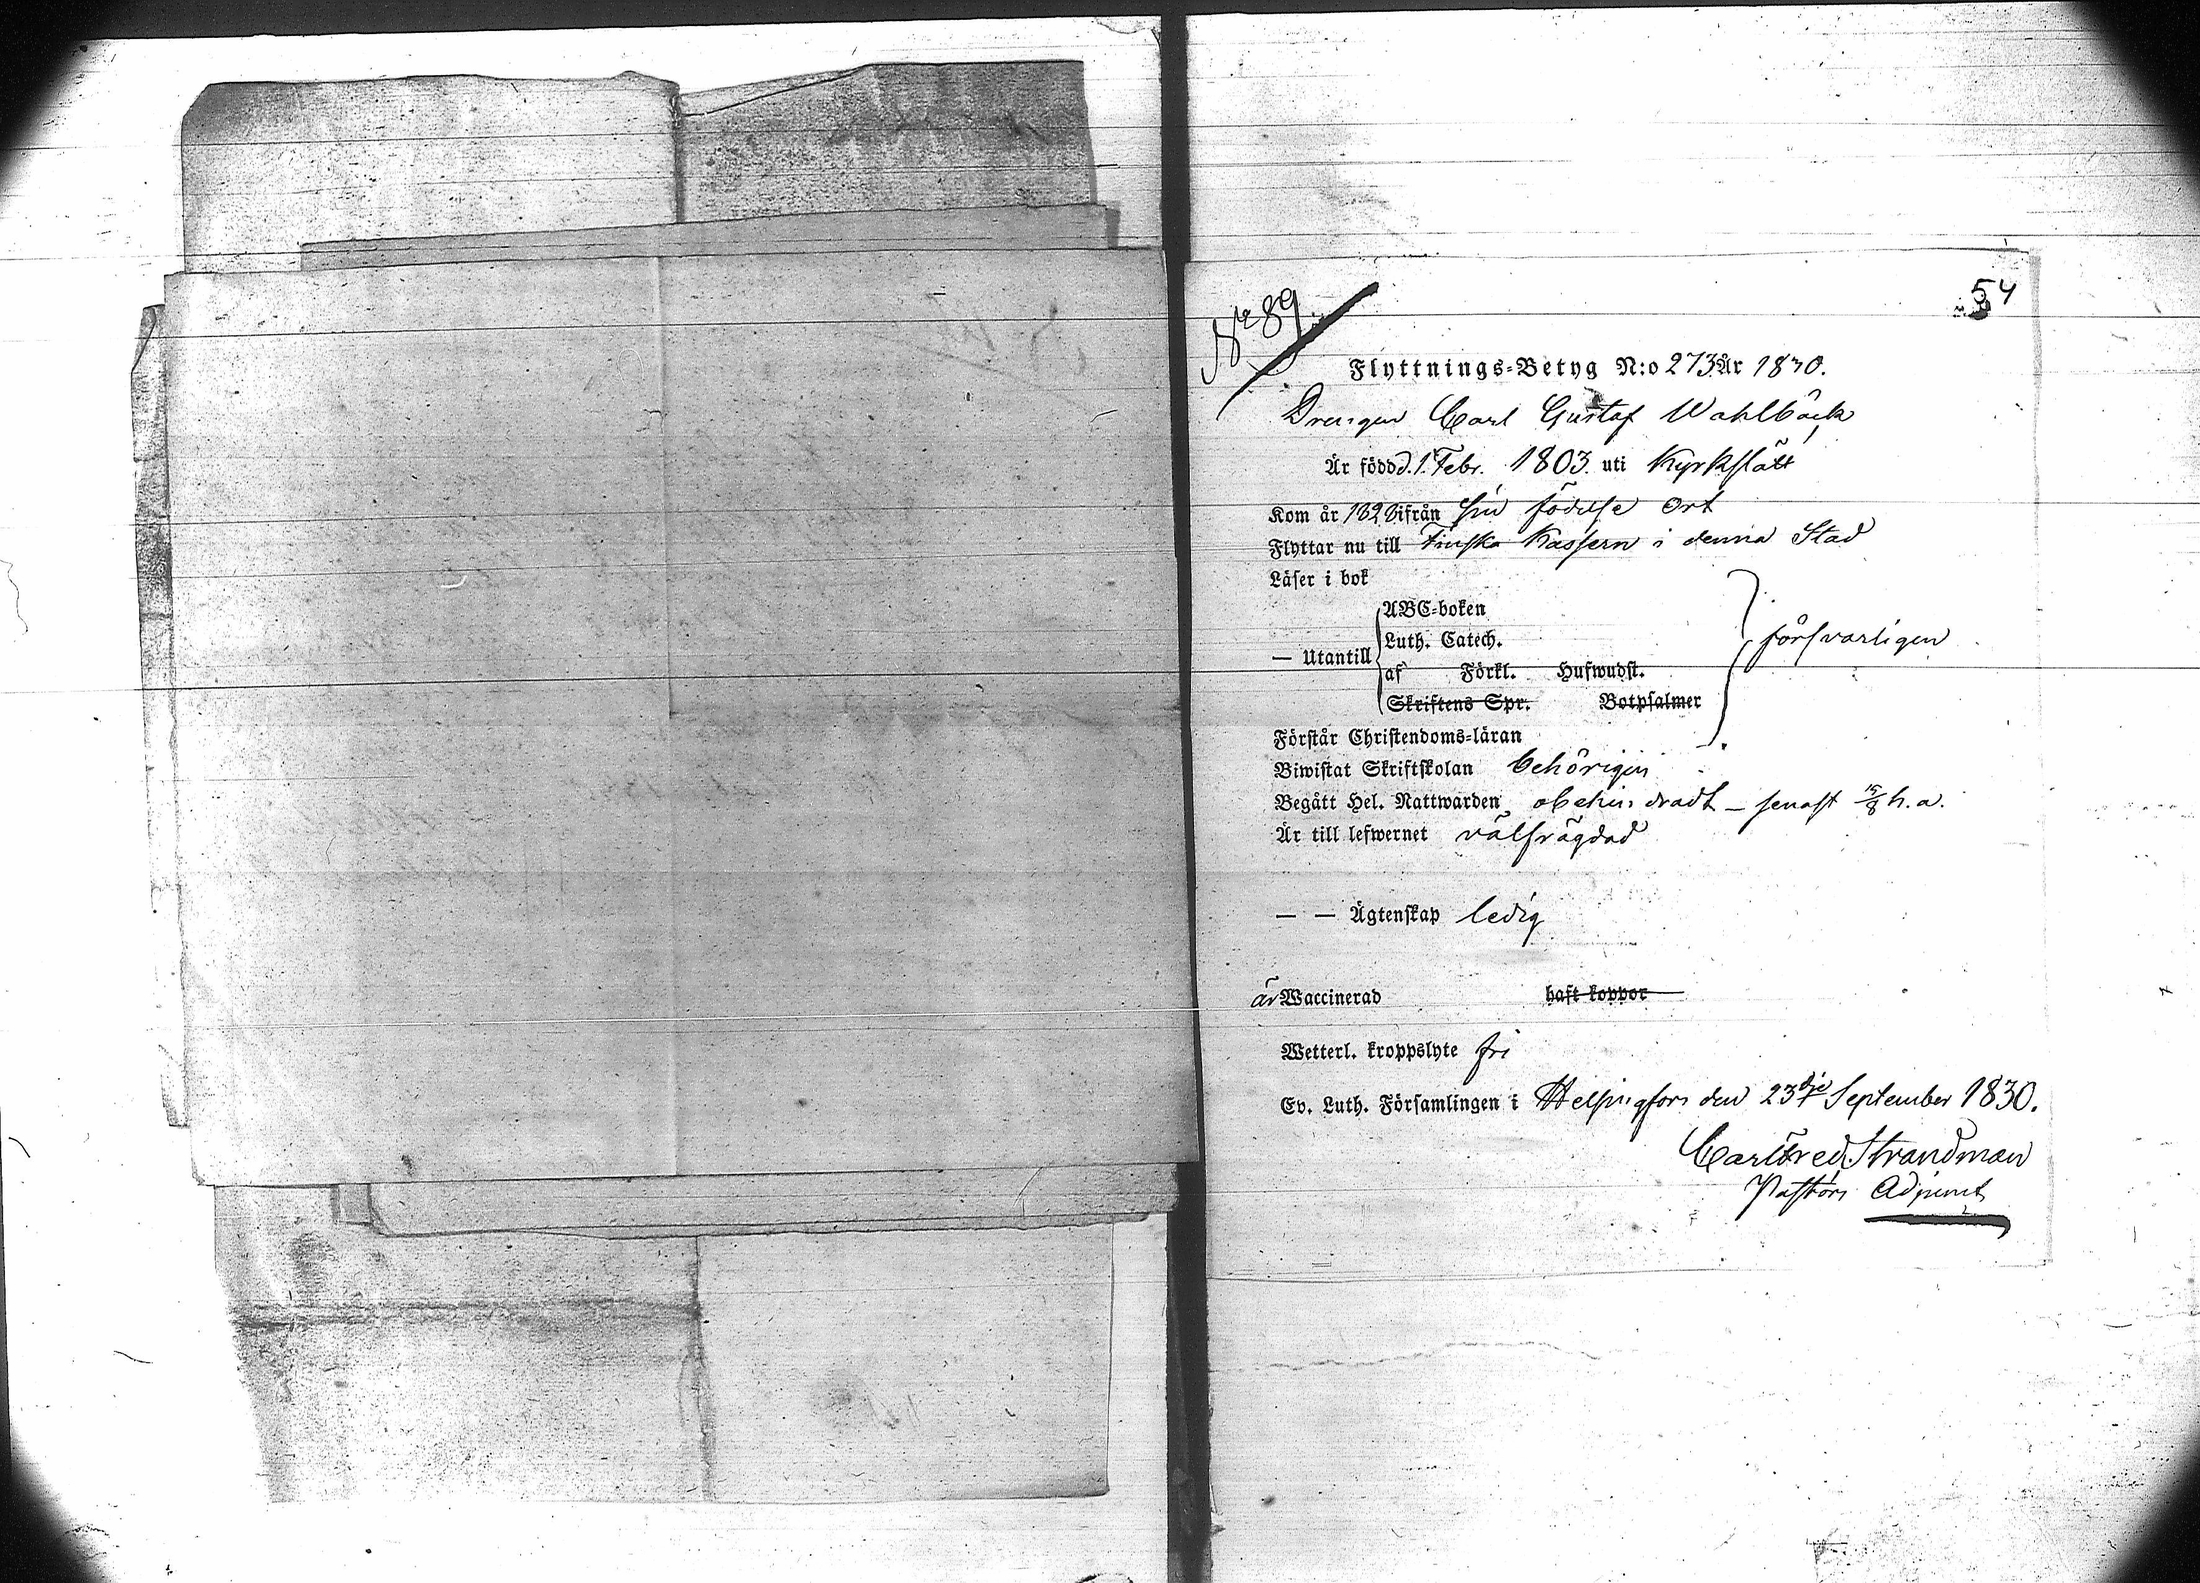 54
No 89
Flyttnings-Betyg N:o 273 År 1830.
Drengen Carl Gustaf Wahlbäck
Är född d. 1 Febr. 1803 uti Kyrkslätt
Kom år 1828 ifrån sin födelse ort
Flyttar nu till Finska Kassern i denna Stad
Läser i bok
ABC-boken
Luth. Catech.
— Utantill
försvarligen
af Förkl. Hufwudst.
Skriftens Spr. Botpsalmer
Förstår Christendoms-läran
Biwistat Skriftskolan behörigen
Begått Hel. Nattwarden obehindradt – senast 15/8 h. a.
Är till lefwernet välfrägdad
— — Ägtenskap ledig
är Waccinerad haft koppor
Wetterl. kroppslyte fri
Ev. Luth. Församlingen i Helsingfors den 23dje September 1830.
Carl Fred. Strandman
Pastors Adjunct